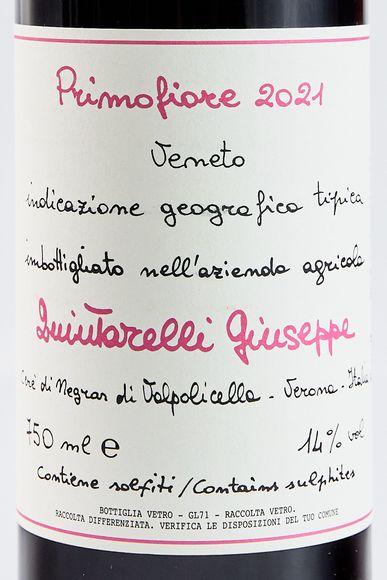 Primofiore 2021
Veneto
indicazione geografica tipica
imbottigliato nell'azienda agricola
Quintarelli Giuseppe
Cerè di Negrar di Valpolicella - Verona - Italia
750 ml e 14% vol
Contiene solfiti/Contains sulphites
BOTTIGLIA VETRO - GL71 - RACCOLTA VETRO.
RACCOLTA DIFFERENZIATA. VERIFICA LE DISPOSIZIONI DEL TUO COMUNE